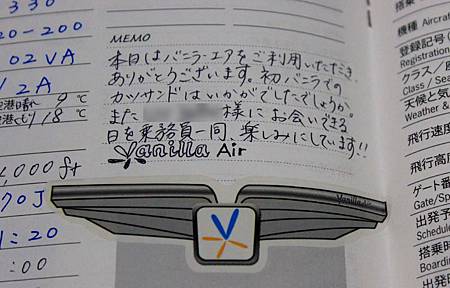 330
20-200
02VA
/2A
空港晴れ 9℃
空港くもり 18℃
,000 ft
70J
1:20
:00
MEMO
本日はバニラ・エアをご利用いただき
ありがとうございます。初バニラでの
カツサンドはいかがでしたでしょうか。
また 様にお会いできる
日を乗務員一同、楽しみにしています!!
Vanilla Air
Vanilla Air
搭乗
機種 Aircra
登録記号(
Registratio
クラス/座
Class / Sea
天候と気
Weather &
飛行速度
飛行高度
ゲート番
Gate/Sp
出発予定
Schedule
搭乗時
Boardin
出発時